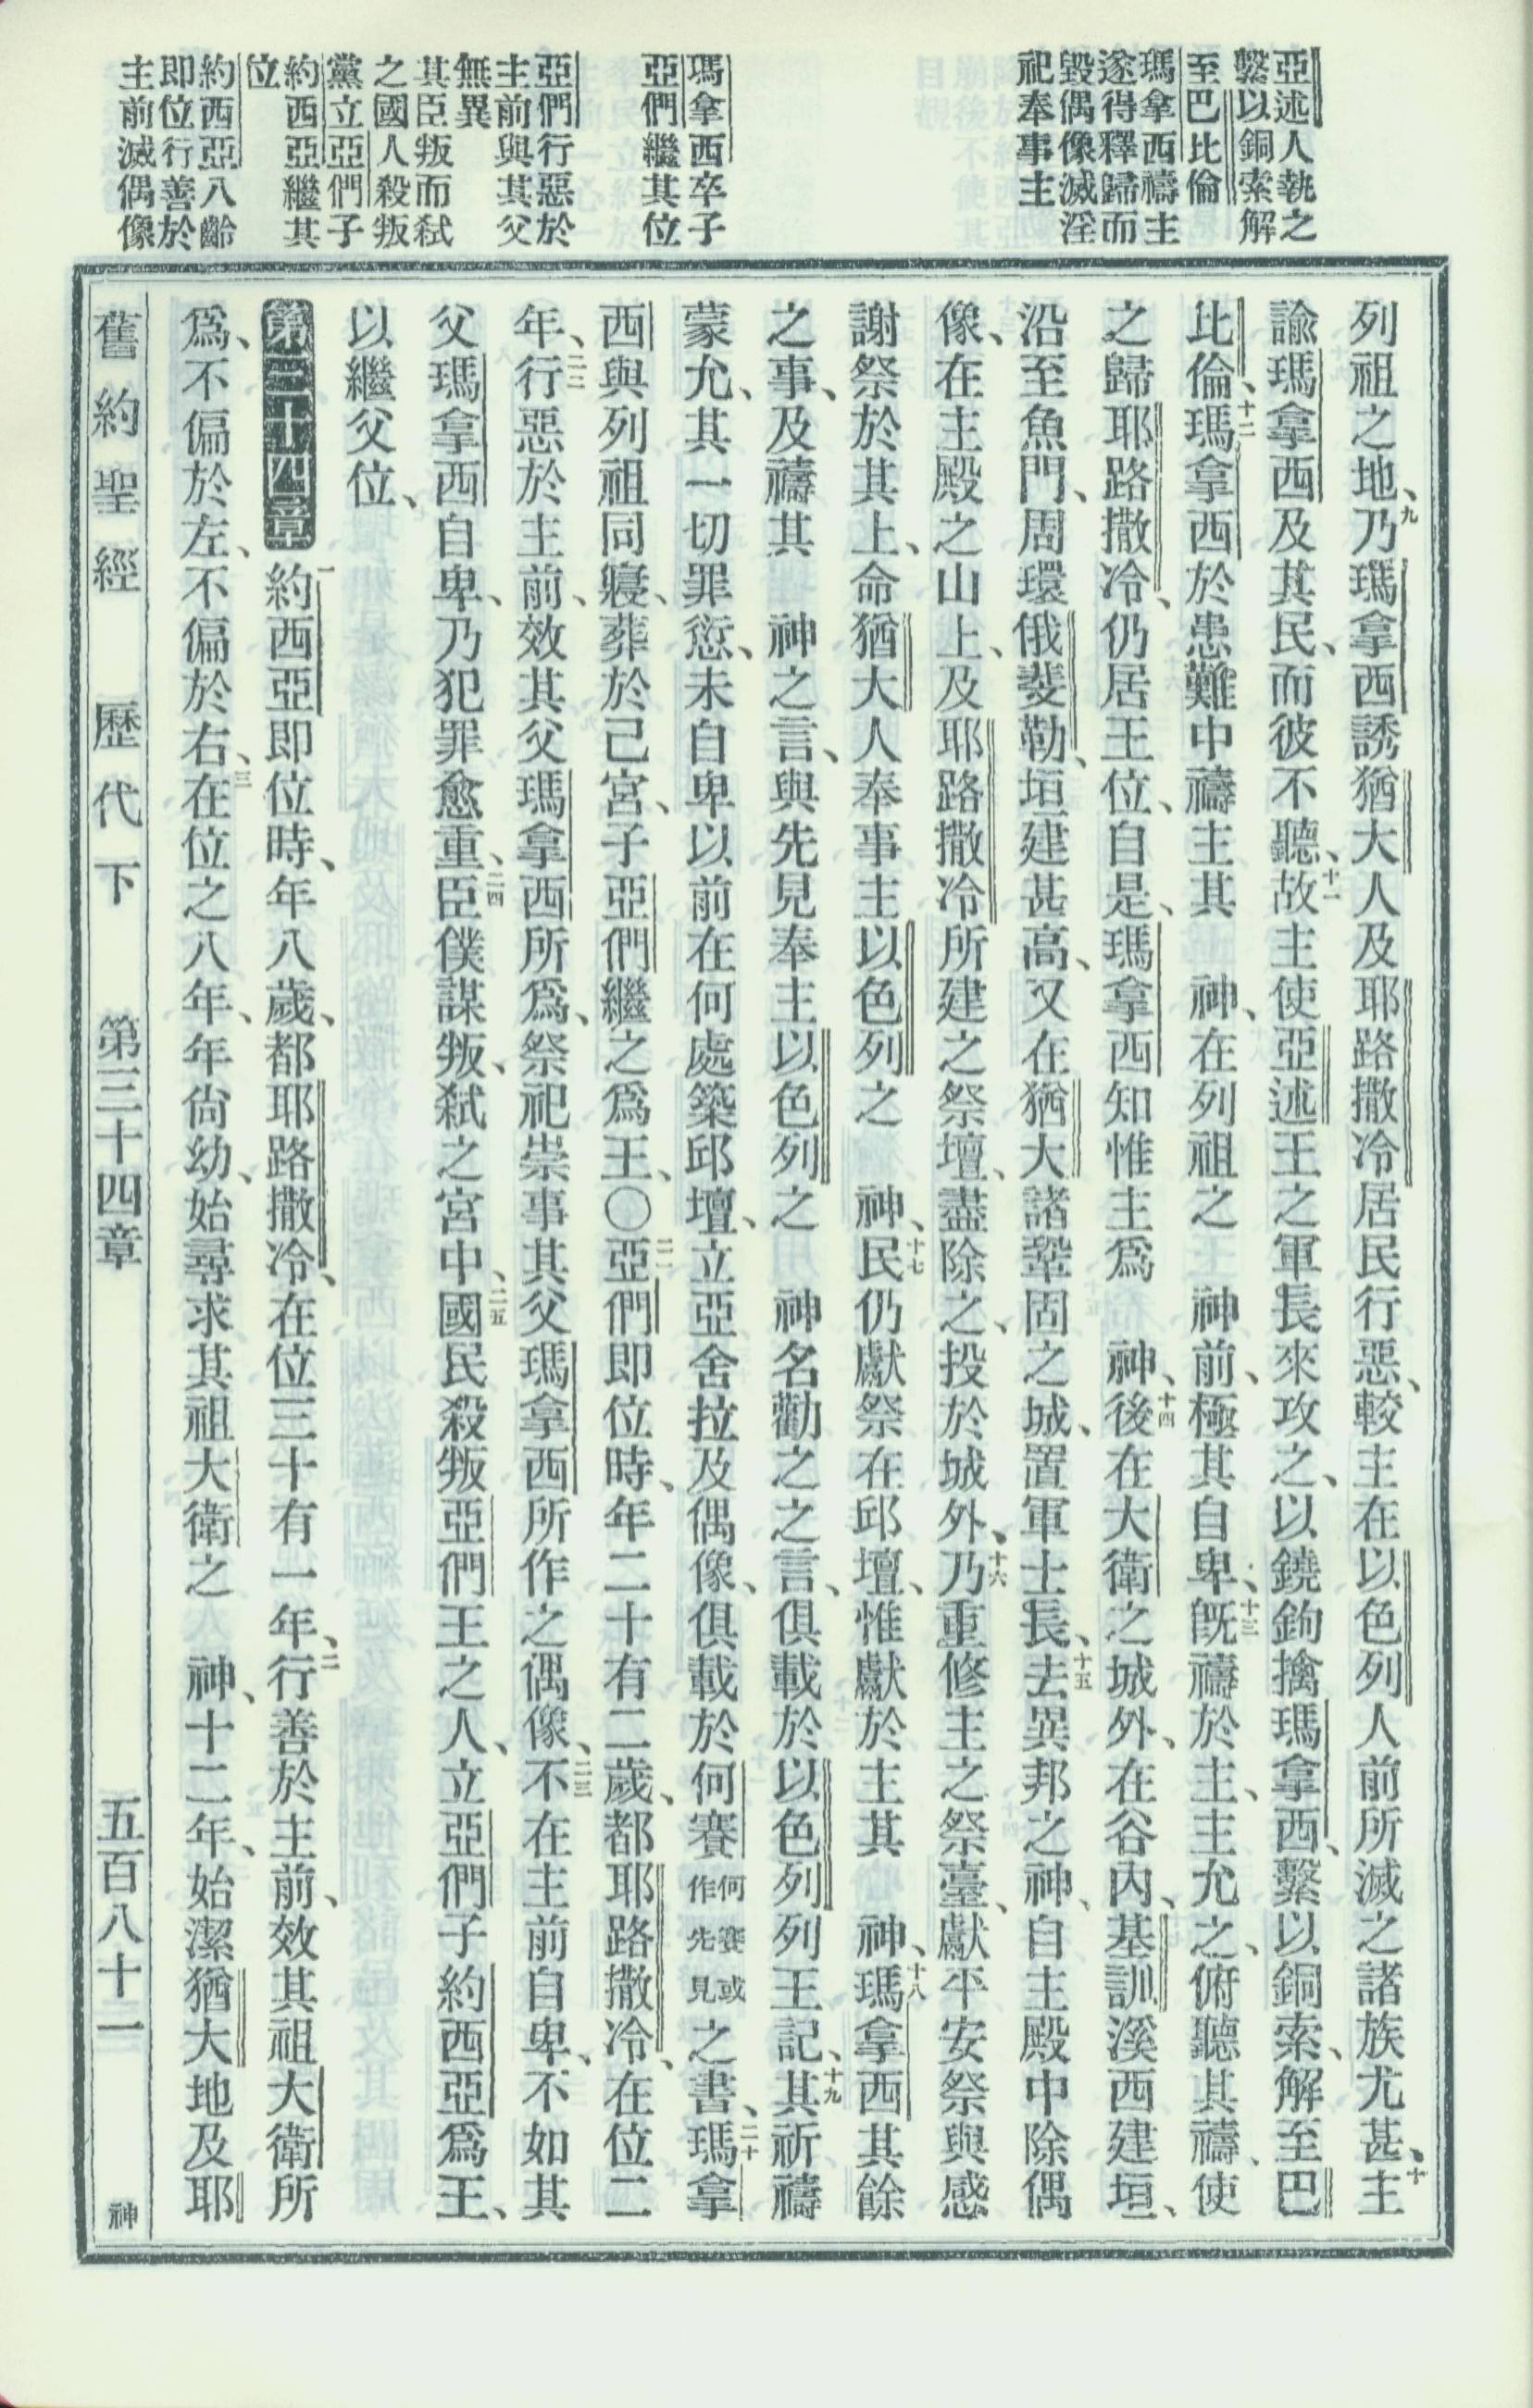 亞述人執之
繫以銅索解
至巴比倫
瑪拿西禱主
遂得釋歸而
毀偶像滅淫
祀奉事主
瑪拿西卒子
亞們繼其位
亞們行惡於
主前與其父
無異
其臣叛而弑
之國人殺叛
黨立亞們子
約西亞繼其
位
約西亞八齡
即位行善於
主前滅偶像
列祖之地、九乃瑪拿西誘猶大人及耶路撒冷居民行惡、較主在以色列人前所滅之諸族尤甚、十主
諭瑪拿西及其民、而彼不聽、十一故主使亞述王之軍長來攻之、以鐃鉤擒瑪拿西、繫以銅索、解至巴
比倫、十二瑪拿西於患難中禱主其 神、在列祖之 神前、極其自卑、十三旣禱於主、主允之、俯聽其禱、使
之歸耶路撒冷、仍居王位、自是、瑪拿西知惟主爲 神、十四後在大衛之城外、在谷內、基訓溪西建垣、
沿至魚門、周環俄斐勒、垣建甚高、又在猶大諸鞏固之城、置軍士長、十五去異邦之神、自主殿中除偶
像、在主殿之山上、及耶路撒冷所建之祭壇、盡除之、投於城外、十六乃重修主之祭臺、獻平安祭與感
謝祭於其上、命猶大人奉事主以色列之 神、十七民仍獻祭在邱壇、惟獻於主其 神、十八瑪拿西其餘
之事、及禱其 神之言、與先見奉主以色列之 神名勸之之言、俱載於以色列列王記、十九其祈禱
蒙允、其一切罪愆、未自卑以前在何處築邱壇、立亞舍拉及偶像、俱載於何賽何賽或作先見之書、二十瑪拿
西與列祖同寢、葬於己宮、子亞們繼之爲王、○二一亞們即位時、年二十有二歲、都耶路撒冷、在位二
年、二二行惡於主前、效其父瑪拿西所爲、祭祀崇事其父瑪拿西所作之偶像、二三不在主前自卑、不如其
父瑪拿西自卑、乃犯罪愈重、二四臣僕謀叛、弑之宮中、二五國民殺叛亞們王之人、立亞們子約西亞爲王、
以繼父位、
第三十四章 一約西亞即位時、年八歲、都耶路撒冷、在位三十有一年、二行善於主前、效其祖大衛所
爲、不偏於左、不偏於右、三在位之八年、年尙幼、始尋求其祖大衛之 神、十二年、始潔猶大地及耶
舊約聖經 歷代下 第三十四章 五百八十一 神